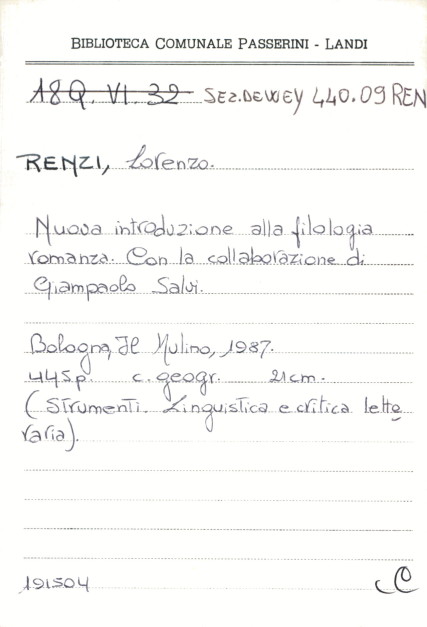 BIBLIOTECA COMUNALE PASSERINI - LANDI
18 Q. VI. 32 SEZ.DEWEY 440.09 REN
RENZI, Lorenzo.
Nuova introduzione alla filologia
romanza. Con la collaborazione di
Giampaolo Salvi.
Bologna, Il Mulino, 1987.
445p. c. geogr. 21cm.
(Strumenti. Linguistica e critica lette
raria).
191504